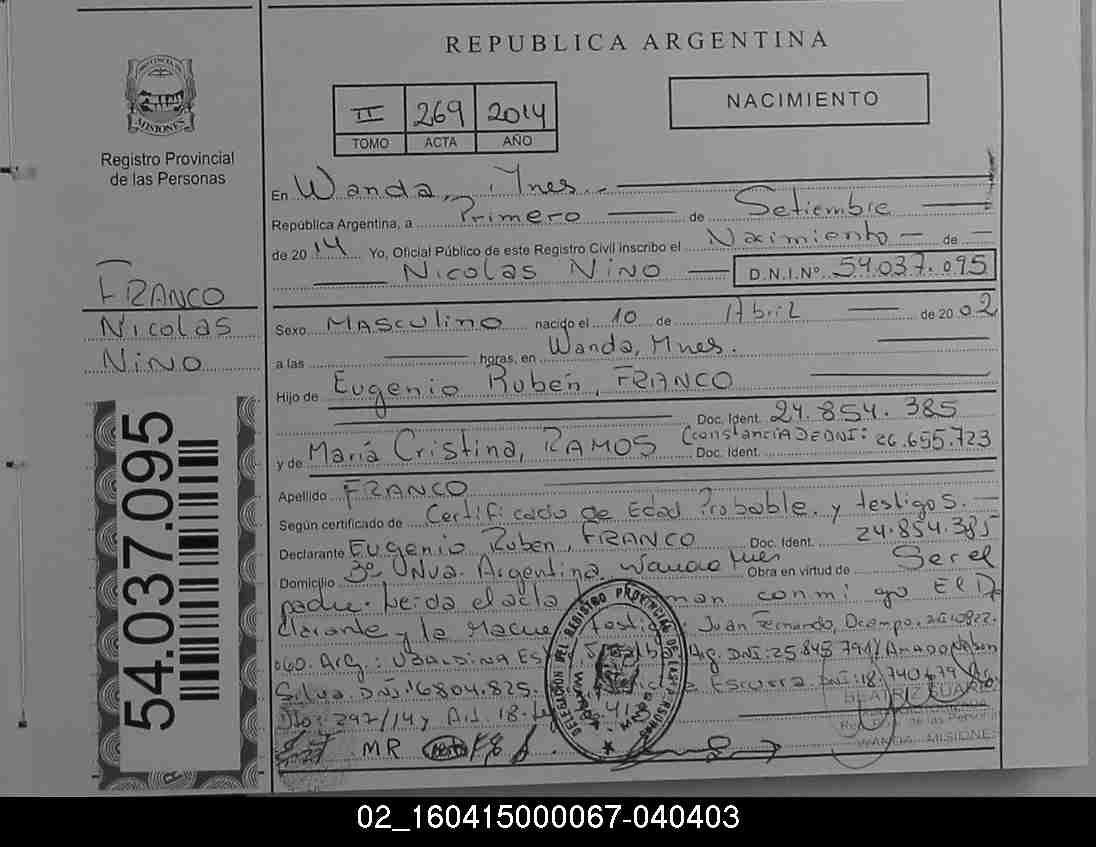 REPUBLICA ARGENTINA
PROVINCIA DE
MISIONES
Registro Provincial
de las Personas
II 269 2014
TOMO ACTA AÑO
NACIMIENTO
En Wanda, Mnes.
República Argentina, a Primero de Setiembre
de 2014 Yo, Oficial Público de este Registro Civil inscribo el Nacimiento de
Nicolas Nino D.N.I.Nº 54.037.095
FRANCO
Nicolas
Nino
54.037.095
Sexo Masculino nacido el 10 de Abril de 2002
a las horas, en Wanda, Mnes.
Hijo de Eugenio Ruben, FRANCO
Doc. Ident. 24.854.385
y de María Cristina, RAMOS (constancia DE DNI: 26.655.723
Doc. Ident.
Apellido FRANCO
Según certificado de Certificado de Edad Probable y testigos.
Declarante Eugenio Ruben, FRANCO Doc. Ident. 24.854.385
Domicilio Argentina. Wanda Mnes Obra en virtud de Ser el
padre. Leida el acta conmigo El De
clarante y la Testigos: Juan Fernando, Ocampo.
Arg. DNI: 25.845.794 Y Amado Nelson
Silva. DNI: 16.804.825.
Dto: 292/14 y Art. 18
MR
DELEGACION DEL REGISTRO PROVINCIAL DE LAS PERSONAS
WANDA
BEATRIZ
de las Personas
WANDA - MISIONES
02_160415000067-040403